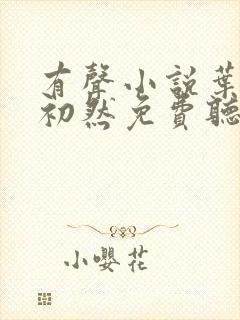 有聲小說葉
初然免費聽
小嚶花